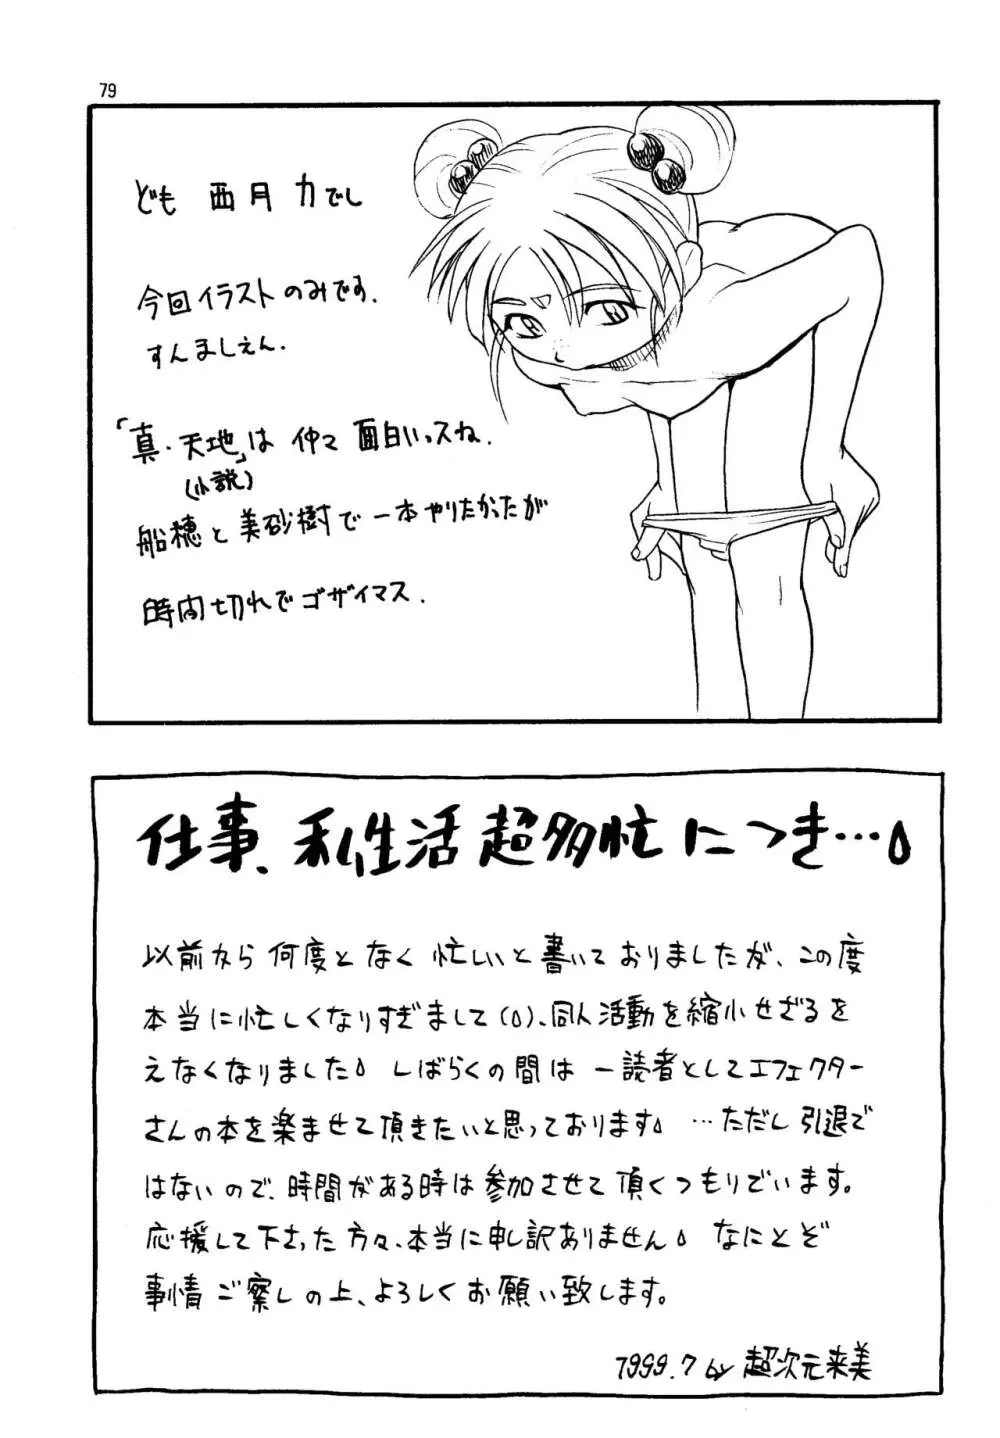 79
ども 西月 力でし
今回イラストのみです.
すんましぇん.
「真・天地」は 仲々 面白いっスね.
(小説)
船穂と美砂樹で一本やりたかったが
時間切れでゴザイマス.
仕事、私生活 超多忙につき…
以前から何度となく忙しいと書いておりましたが、この度
本当に忙しくなりすぎまして()、同人活動を縮小せざるを
えなくなりました しばらくの間は一読者としてエフェクター
さんの本を楽ませて頂きたいと思っております …ただし引退で
はないので、時間がある時は参加させて頂くつもりでいます。
応援して下さった方々、本当に申し訳ありません なにとぞ
事情ご察しの上、よろしくお願い致します。
1999.7 by 超次元来美